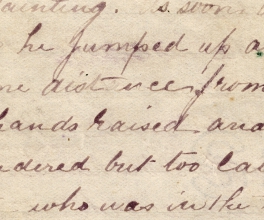 ainting. As soon
he jumped up a
ne distance from
hands raised and
ndered but too cal
who was in the